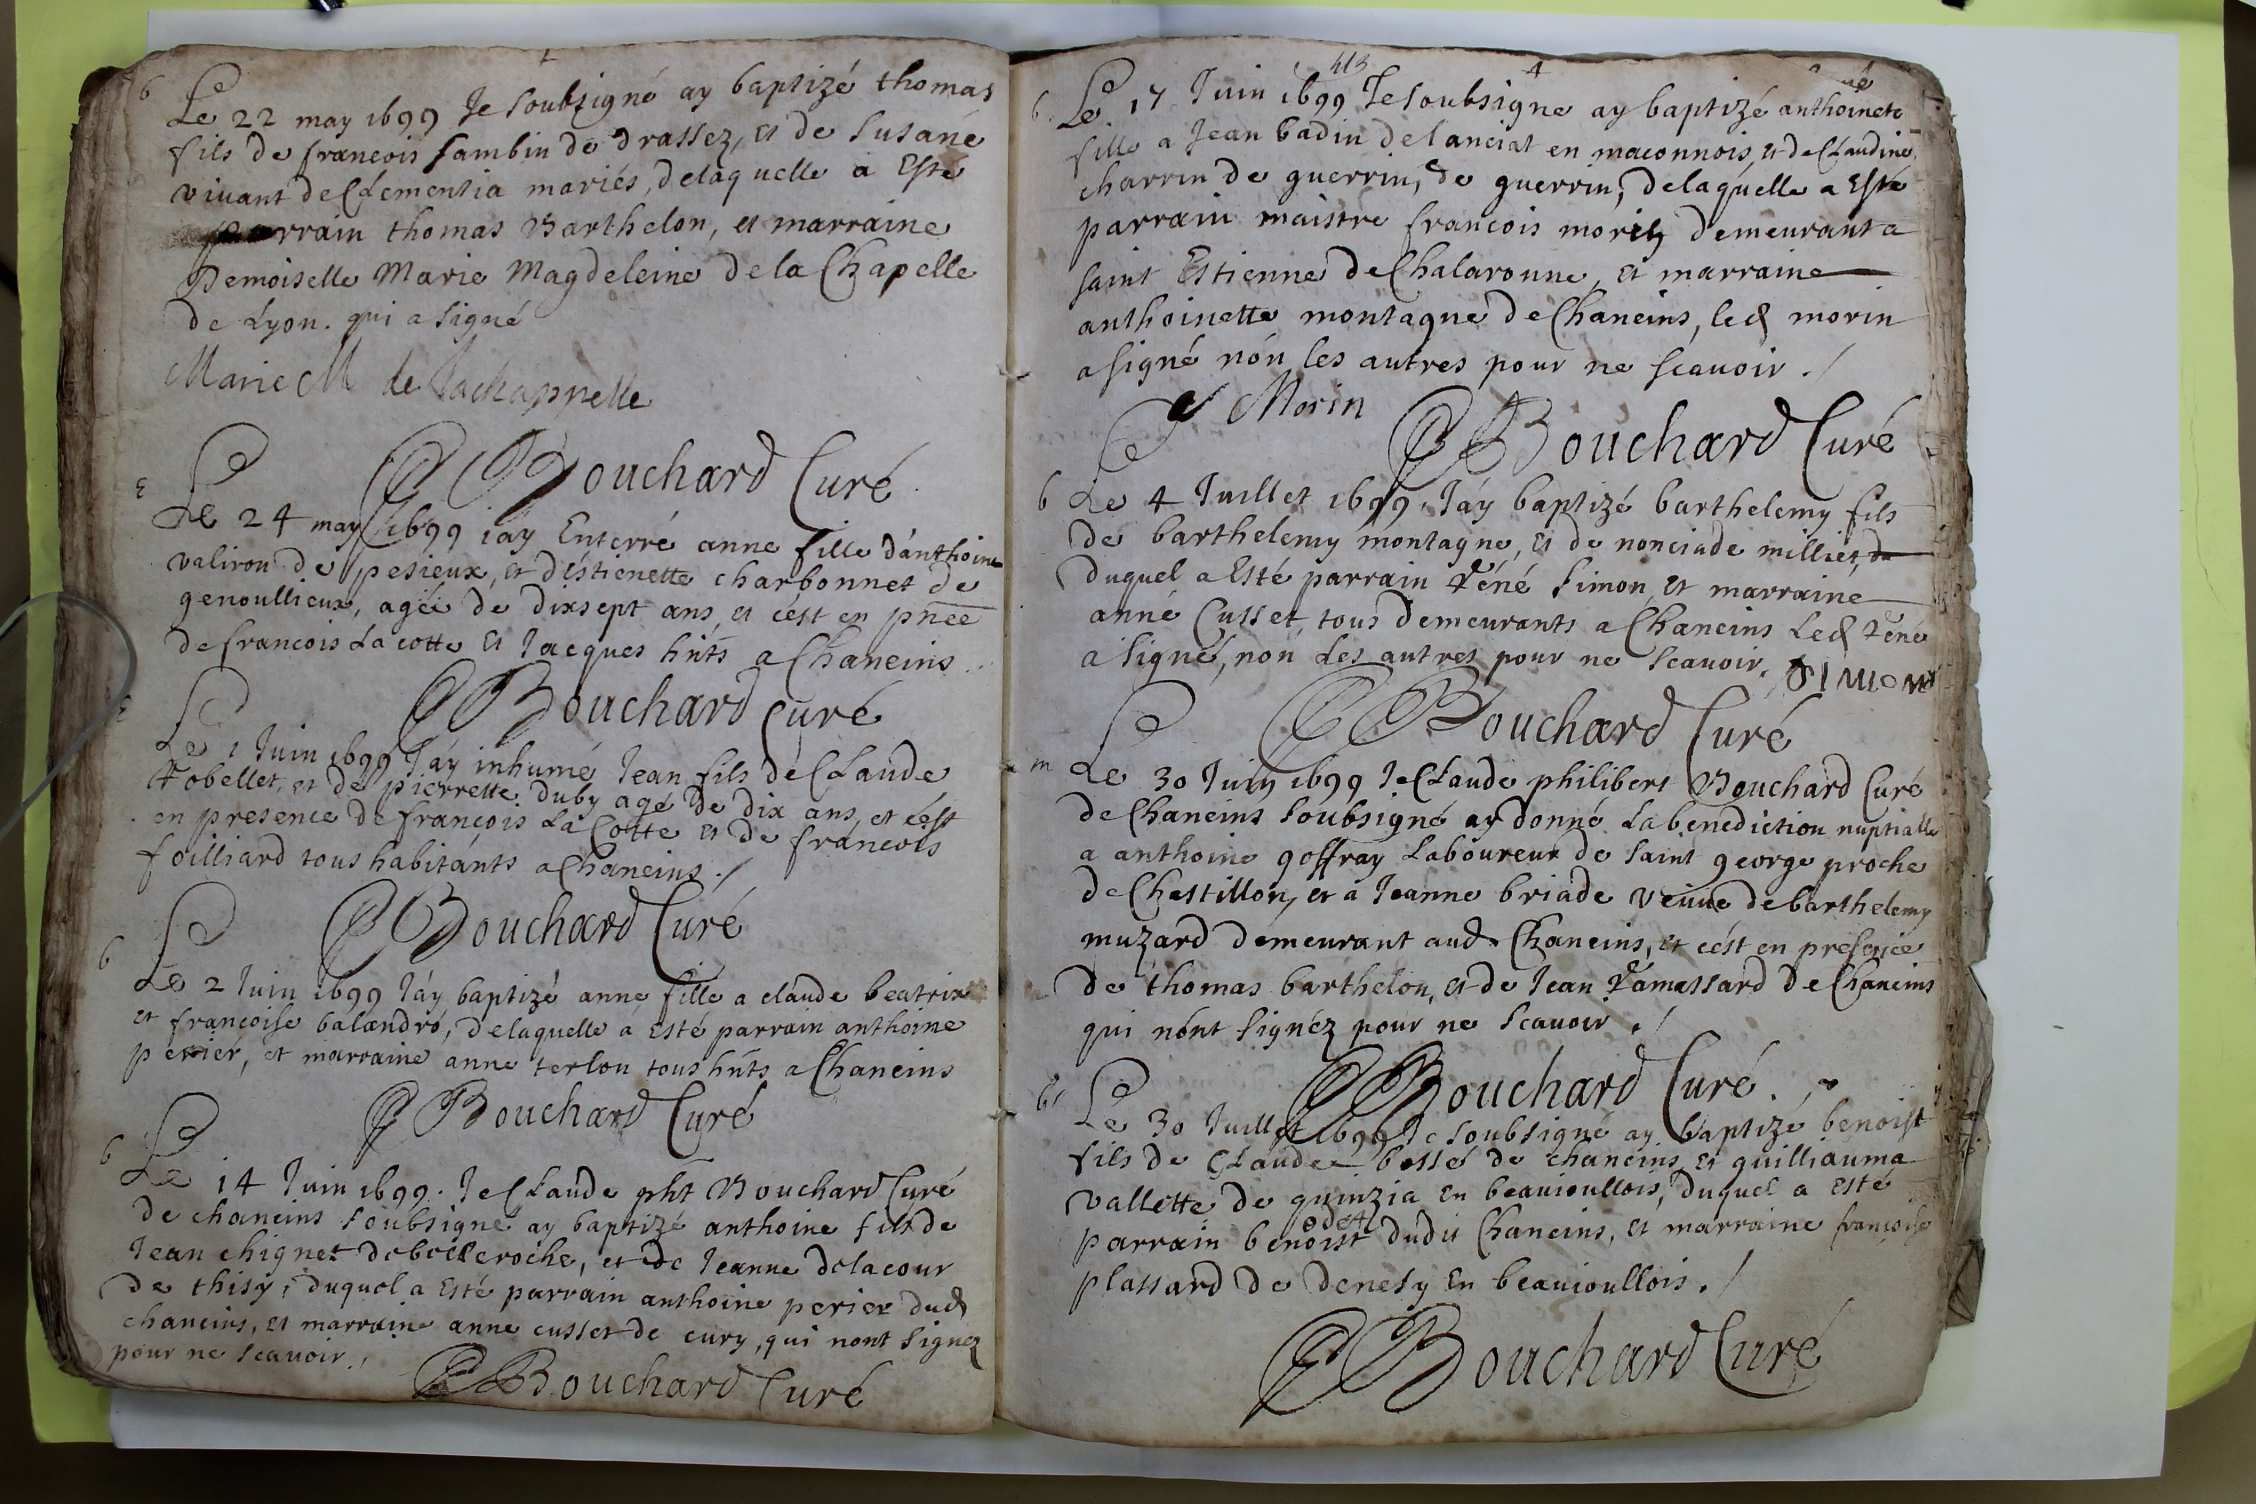 b
Le 22 may 1699 Je soubsigné ay baptizé thomas
fils de francois sambin de drassez, et de susane
vivant de Clementia mariés, delaquelle a Esté
parrain thomas Barthelon, et marraine
Demoiselle Marie Magdeleine de la Chapelle
de Lyon. qui a signé
Marie M de Lachappelle
Bouchard Curé
E
Le 24 may 1699 iáy Enterré anne fille dánthoine
valiron de pesieux, et déstienette charbonnet de
genoullieux, agée de dixsept ans, et cést en pñce
de francois Lacotte Et Jacques hñts a Chaneins
Bouchard Curé
E
Le 1 Juin 1699 Jáy inhumé Jean fils de Claude
Robellet, et de pierrette duby agé de dix ans, et cést
en presence de francois La Cotte et de francois
foilliard tous habitánts a Chaneins ./
Bouchard Curé
b
Le 2 Juin 1699 Jáy baptizé anne fille a claude beatrix
et francoise balandró, delaquelle a esté parrain anthoine
perier, et marraine anne terlon tous hñts a Chaneins
Bouchard Curé
b
Le 14 Juin 1699. Je Claude pht Bouchard Curé
de chaneins soubsigné ay baptizé anthoine fils de
Jean chignet de belleroche, et de Jeanne delacour
de thisy, duquel a esté parrain anthoine perier dud
chaneins, et marraine anne cusset de cury, qui nont signéz
pour ne scavoir ./
Bouchard Curé
413
4
b
Le 17 Juin 1699 Je soubsigne ay baptizé anthoinete
fille a Jean badin de lanciat en maconnois, et de Claudine
charrin de guerrin, de guerrin, delaquelle a Esté
parrain maistre francois morin demeurant a
saint Estienne de Chalaronne, et marraine
anthoinette montagne de Chaneins, led morin
a signé nón les autres pour ne scavoir ./
Morin
Bouchard Curé
b
Le 4 Juillet 1699, Jáy baptizé barthelemy fils
de barthelemy montagne, et de nonciade milliet, du
duquel a Esté parrain Réné simon, et marraine
anne Cusset, tous demeurants a Chaneins Led Réné
a signé, nón Les autres pour ne scavoir. SIMON
Bouchard Curé
m
Le 30 Juin 1699 Je Claude philibert Bouchard Curé
de Chaneins soubsigné ay donné La benediction nuptialle
a anthoine goffray Laboureur de saint george proche
de Chastillon, et a Jeanne briade veuve de barthelemy
muzard demeurant aud. Chaneins, et cést en presence
de thomas barthelon, et de Jean Ramassard de Chaneins
qui nónt signéz pour ne scavoir ./
Bouchard Curé
b
Le 30 Juillet 1699 Je soubsigné ay baptizé benoist
fils de Claude bessé de chaneins et guilliauma
vallette de quinzia en beauioullois, duquel a Esté
odet
parrain benoist dudit Chaneins, et marraine francoise
plassard de denesy en beauioullois ./
Bouchard Curé